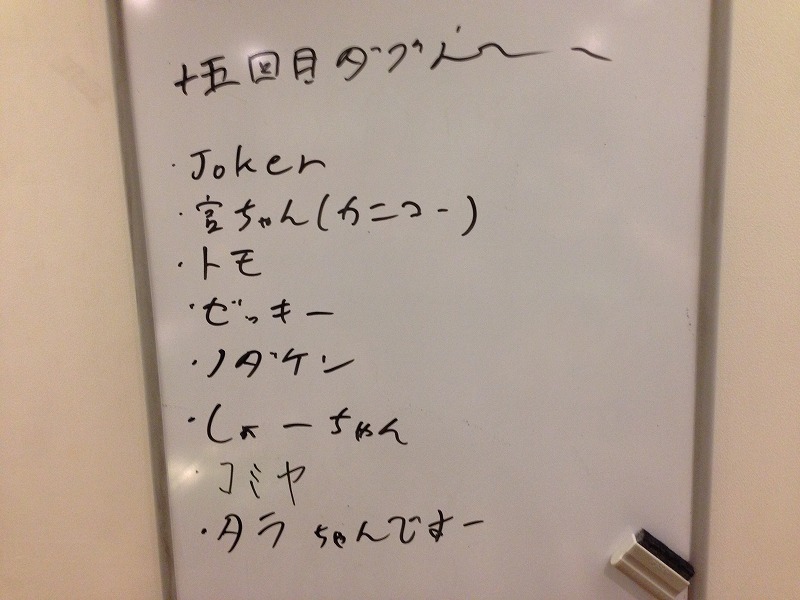 十五回目ダブ
・Joker
・宮ちゃん(カニコー)
・トモ
・ゼッキー
・ノダケン
・しょーちゃん
・コミヤ
・タラちゃんですー